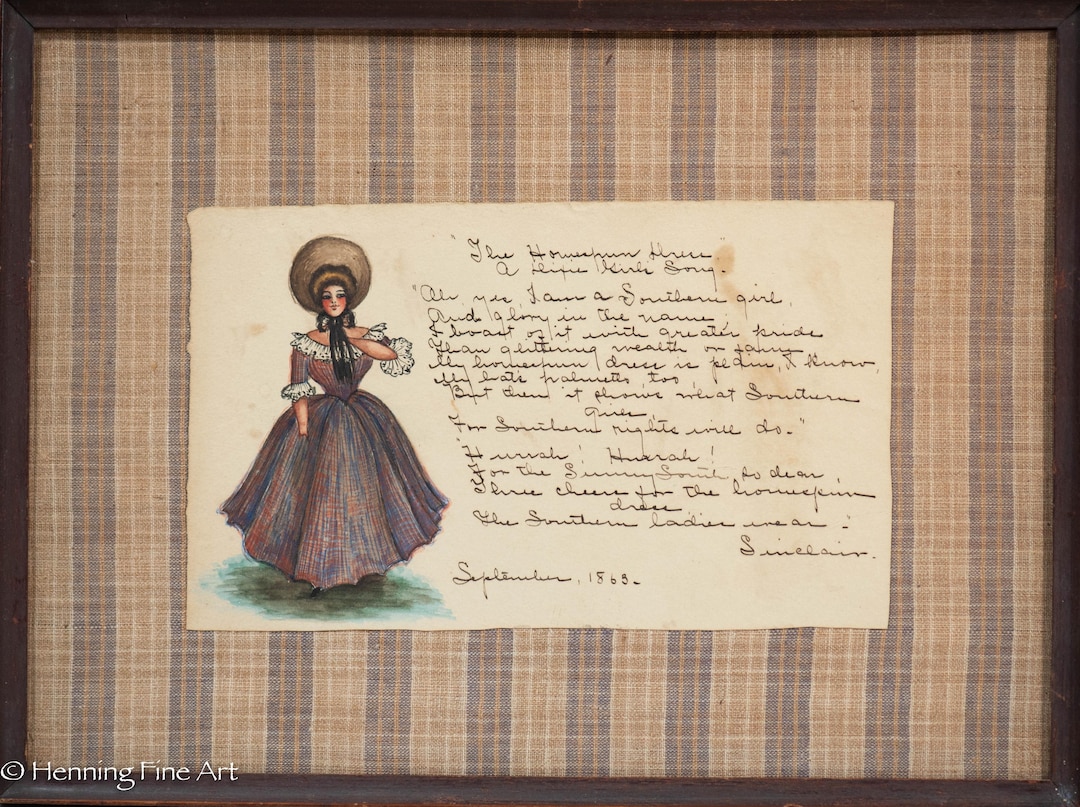 "The Homespun Dress"
A Dixie Girls Song.
"Oh, yes, I am a Southern girl,
And glory in the name,
I boast of it with greater pride
Than glittering wealth or fame
My homespun dress is plain, I know,
My hat's palmetto, too,
But then it shows what Southern
girls,
For Southern rights will do."
"Hurrah! Hurrah!
For the Sunny South so dear
Three cheers for the homespun
dress
The Southern ladies wear."
Sinclair.
September, 1863.
© Henning Fine Art